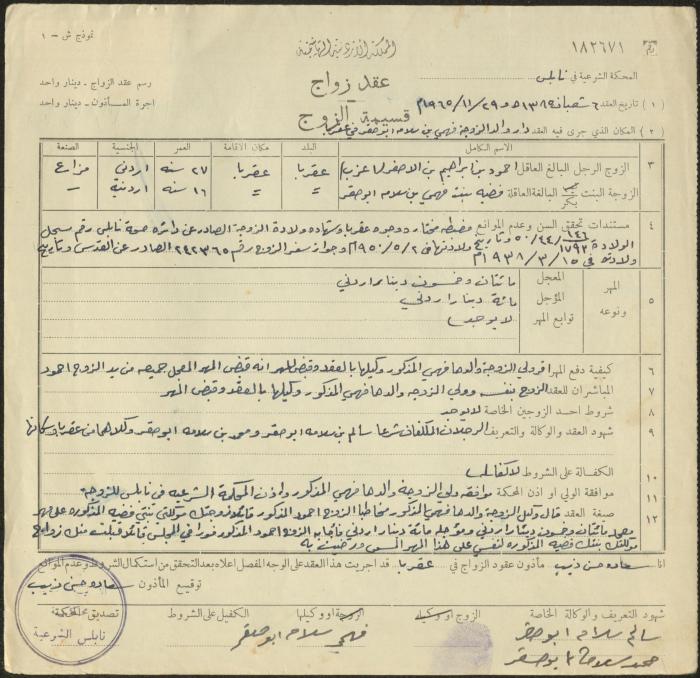 نموذج ش - ١
المملكة الأردنية الهاشمية
رقم ١٨٢٦٧١
عقد زواج
قسيمة الزوج
المحكمة الشرعية في نابلس
رسم عقد الزواج - دينار واحد
اجرة المأذون - دينار واحد
( ١ ) تاريخ العقد ٦ شعبان ١٣٨٤هـ و ٢٩/١١/١٩٦٥م
( ٢ ) المكان الذي جرى فيه العقد دار والد الزوجة فهمي بن سلامه ابو صقر في عقربا
الاسم الكامل البلد مكان الاقامة العمر الجنسية الصنعة
٣ الزوج الرجل البالغ العاقل احمود بن ابراهيم بن الاصفر عقربا عقربا ٢٧ سنه اردني مزارع
الزوجة البنت بكر البالغة العاقلة فضيه بنت فهمي بن سلامه ابو صقر = = ١٦ سنه اردنية -
٤ مستندات تحقق السن وعدم الموانع مضبطه مختار ووجوه عقربا وشهاده ولادة الزوجة الصادر عن دائرة صحة نابلس رقم سجل
الولادة ١٤٦/١٧٩٢ ٥٠/٤٤ وتاريخ ولادتها في ١٩٥٠/٥/٢م وجواز سفر الزوج رقم ٢٤٢٣٦٥ الصادر عن القدس وتاريخ
ولادته في ١٩٣٨/٣/١٥م
٥ المهر ونوعه
المعجل مائتان وخمسون دينار اردني
المؤجل مائة دينار اردني
توابع المهر لا يوجد
٦ كيفية دفع المهر اقر ولي الزوجة والدها فهمي المذكور وكيلها بالعقد وقبض المهر انه قبض المهر المعجل جميعه من يد الزوج احمود
٧ المباشران للعقد الزوج نفسه وولي الزوجه والدها فهمي المذكور وكيلها بالعقد وقبض المهر
٨ شروط احد الزوجين الخاصة لا يوجد
٩ شهود العقد والوكالة والتعريف الرجلان المكلفان شرعا سالم بن سلامه ابو صقر ومحمد بن سلامه ابو صقر وكلاهما من عقربا وسكانها
١٠ الكفالة على الشروط لا كفاله
١١ موافقة الولي او اذن المحكمة موافقه ولي الزوجة والدها فهمي المذكور واذن المحكمة الشرعيه في نابلس للزوجة
١٢ صيغة العقد قال وكيل الزوجة والدها فهمي المذكور مخاطبا الزوج احمود المذكور قائلا زوجتك موكلتي بنتي فضيه المذكوره على مهر
معجل مائتان وخمسون دينار اردني ومؤجل مائة دينار اردني فأجابه الزوج احمود المذكور فورا في المجلس قائلا قبلت منك زواج
موكلتك بنتك فضيه المذكوره لنفسي على هذا المهر المسمى ورضيت به
انا سعاده حسن ذيب مأذون عقود الزواج في عقربا قد اجريت هذا العقد على الوجه المفصل اعلاه بعد التحقق من استكمال الشروط وعدم الموانع
توقيع المأذون سعاده حسن ذيب
شهود التعريف والوكالة الخاصة الزوج او وكيله الزوجة او وكيلها الكفيل على الشروط تصديق المحكمة
سالم سلامه ابو صقر
محمد سلامه ابو صقر
فهمي سلامه ابو صقر
نابلس الشرعية